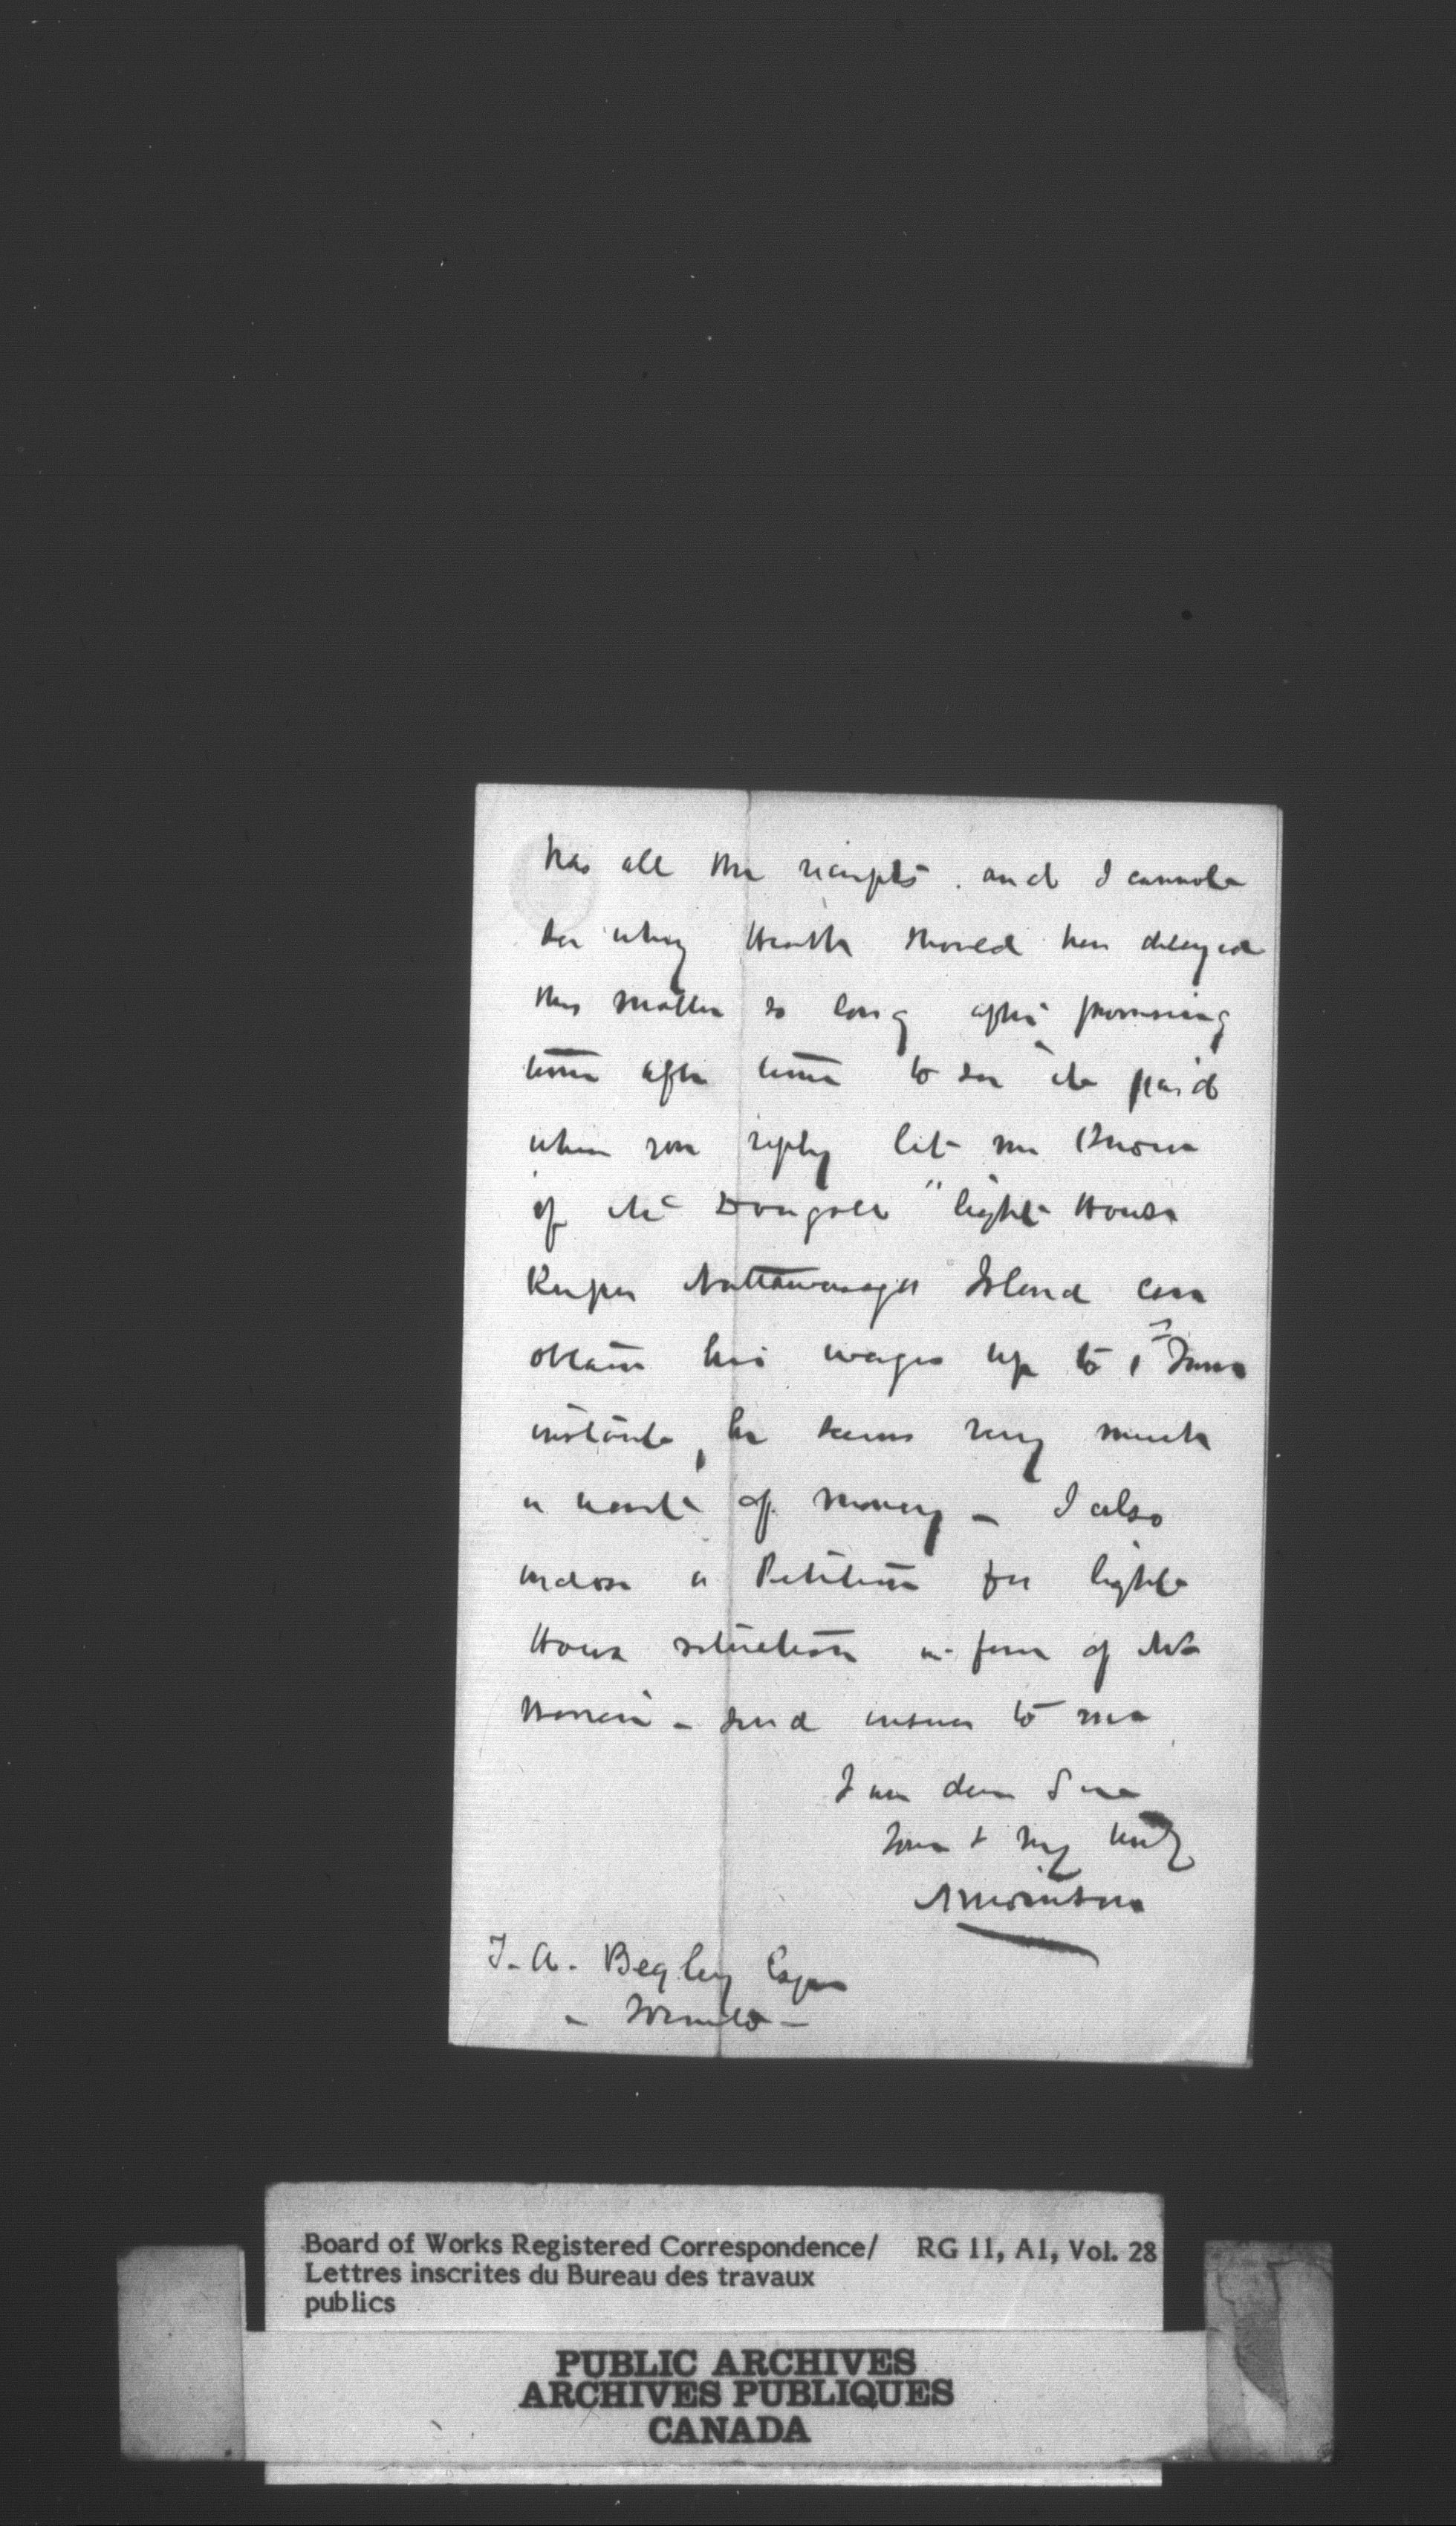 has all the receipts. and I cannot
see why Heath should have delayed
this matter so long after promising
time after time to see it paid
when you reply let me know
if Mc Dougall "light House
Keeper Nottawasaga Island can
obtain his wages up to 1st June
instant, he seems very much
in want of money _ I also
enclose a Petition for light
House situation in favor of Mr
_ send answer to me
I am dear Sir
Yours very truly
T. A. Begley Esqr
- Toronto -
Board of Works Registered Correspondence/ RG 11, A1, Vol. 28
Lettres inscrites du Bureau des travaux
publics
PUBLIC ARCHIVES
ARCHIVES PUBLIQUES
CANADA